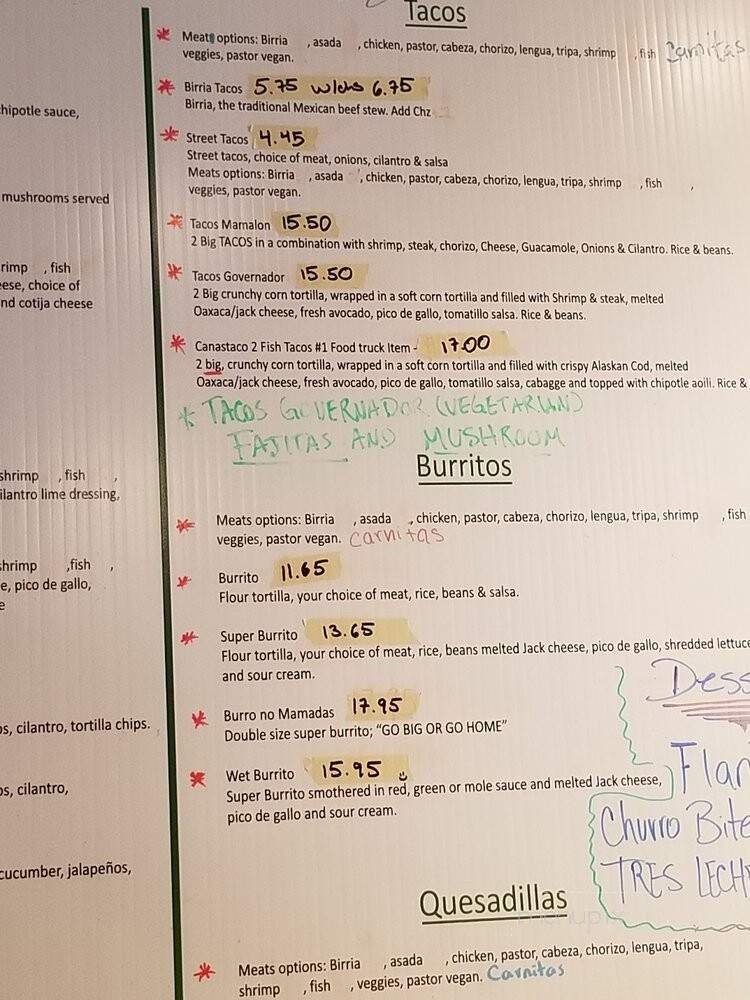 Tacos
Meats options: Birria , asada , chicken, pastor, cabeza, chorizo, lengua, tripa, shrimp , fish Carnitas
veggies, pastor vegan.
Birria Tacos 5.75 w/chs 6.75
Birria, the traditional Mexican beef stew. Add Chz
Street Tacos 4.45
Street tacos, choice of meat, onions, cilantro & salsa
Meats options: Birria , asada , chicken, pastor, cabeza, chorizo, lengua, tripa, shrimp , fish ,
veggies, pastor vegan.
Tacos Mamalon 15.50
2 Big TACOS in a combination with shrimp, steak, chorizo, Cheese, Guacamole, Onions & Cilantro. Rice & beans.
Tacos Governador 15.50
2 Big crunchy corn tortilla, wrapped in a soft corn tortilla and filled with Shrimp & steak, melted
Oaxaca/jack cheese, fresh avocado, pico de gallo, tomatillo salsa. Rice & beans.
Canastaco 2 Fish Tacos #1 Food truck Item - 17.00
2 big, crunchy corn tortilla, wrapped in a soft corn tortilla and filled with crispy Alaskan Cod, melted
Oaxaca/jack cheese, fresh avocado, pico de gallo, tomatillo salsa, cabagge and topped with chipotle aoili. Rice &
* TACOS GOVERNADOR (VEGETARIAN)
FAJITAS AND MUSHROOM
Burritos
Meats options: Birria , asada , chicken, pastor, cabeza, chorizo, lengua, tripa, shrimp , fish
veggies, pastor vegan. Carnitas
Burrito 11.65
Flour tortilla, your choice of meat, rice, beans & salsa.
Super Burrito 13.65
Flour tortilla, your choice of meat, rice, beans melted Jack cheese, pico de gallo, shredded lettuce
and sour cream.
Burro no Mamadas 17.95
Double size super burrito; "GO BIG OR GO HOME"
Wet Burrito 15.95
Super Burrito smothered in red, green or mole sauce and melted Jack cheese,
pico de gallo and sour cream.
Quesadillas
Meats options: Birria , asada , chicken, pastor, cabeza, chorizo, lengua, tripa,
shrimp , fish , veggies, pastor vegan. Carnitas
Dess
Flan
Churro Bite
TRES LECH
hipotle sauce,
mushrooms served
rimp , fish
eese, choice of
nd cotija cheese
shrimp , fish ,
ilantro lime dressing,
hrimp ,fish ,
e, pico de gallo,
e
os, cilantro, tortilla chips.
os, cilantro,
cucumber, jalapeños,